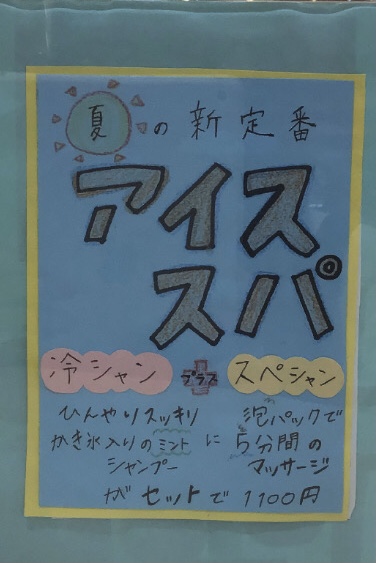 夏の新定番
アイス
スパ
冷シャン プラス スペシャン
ひんやりスッキリ
かき氷入りのミント
シャンプー
に
泡パックで
5分間の
マッサージ
がセットで1100円